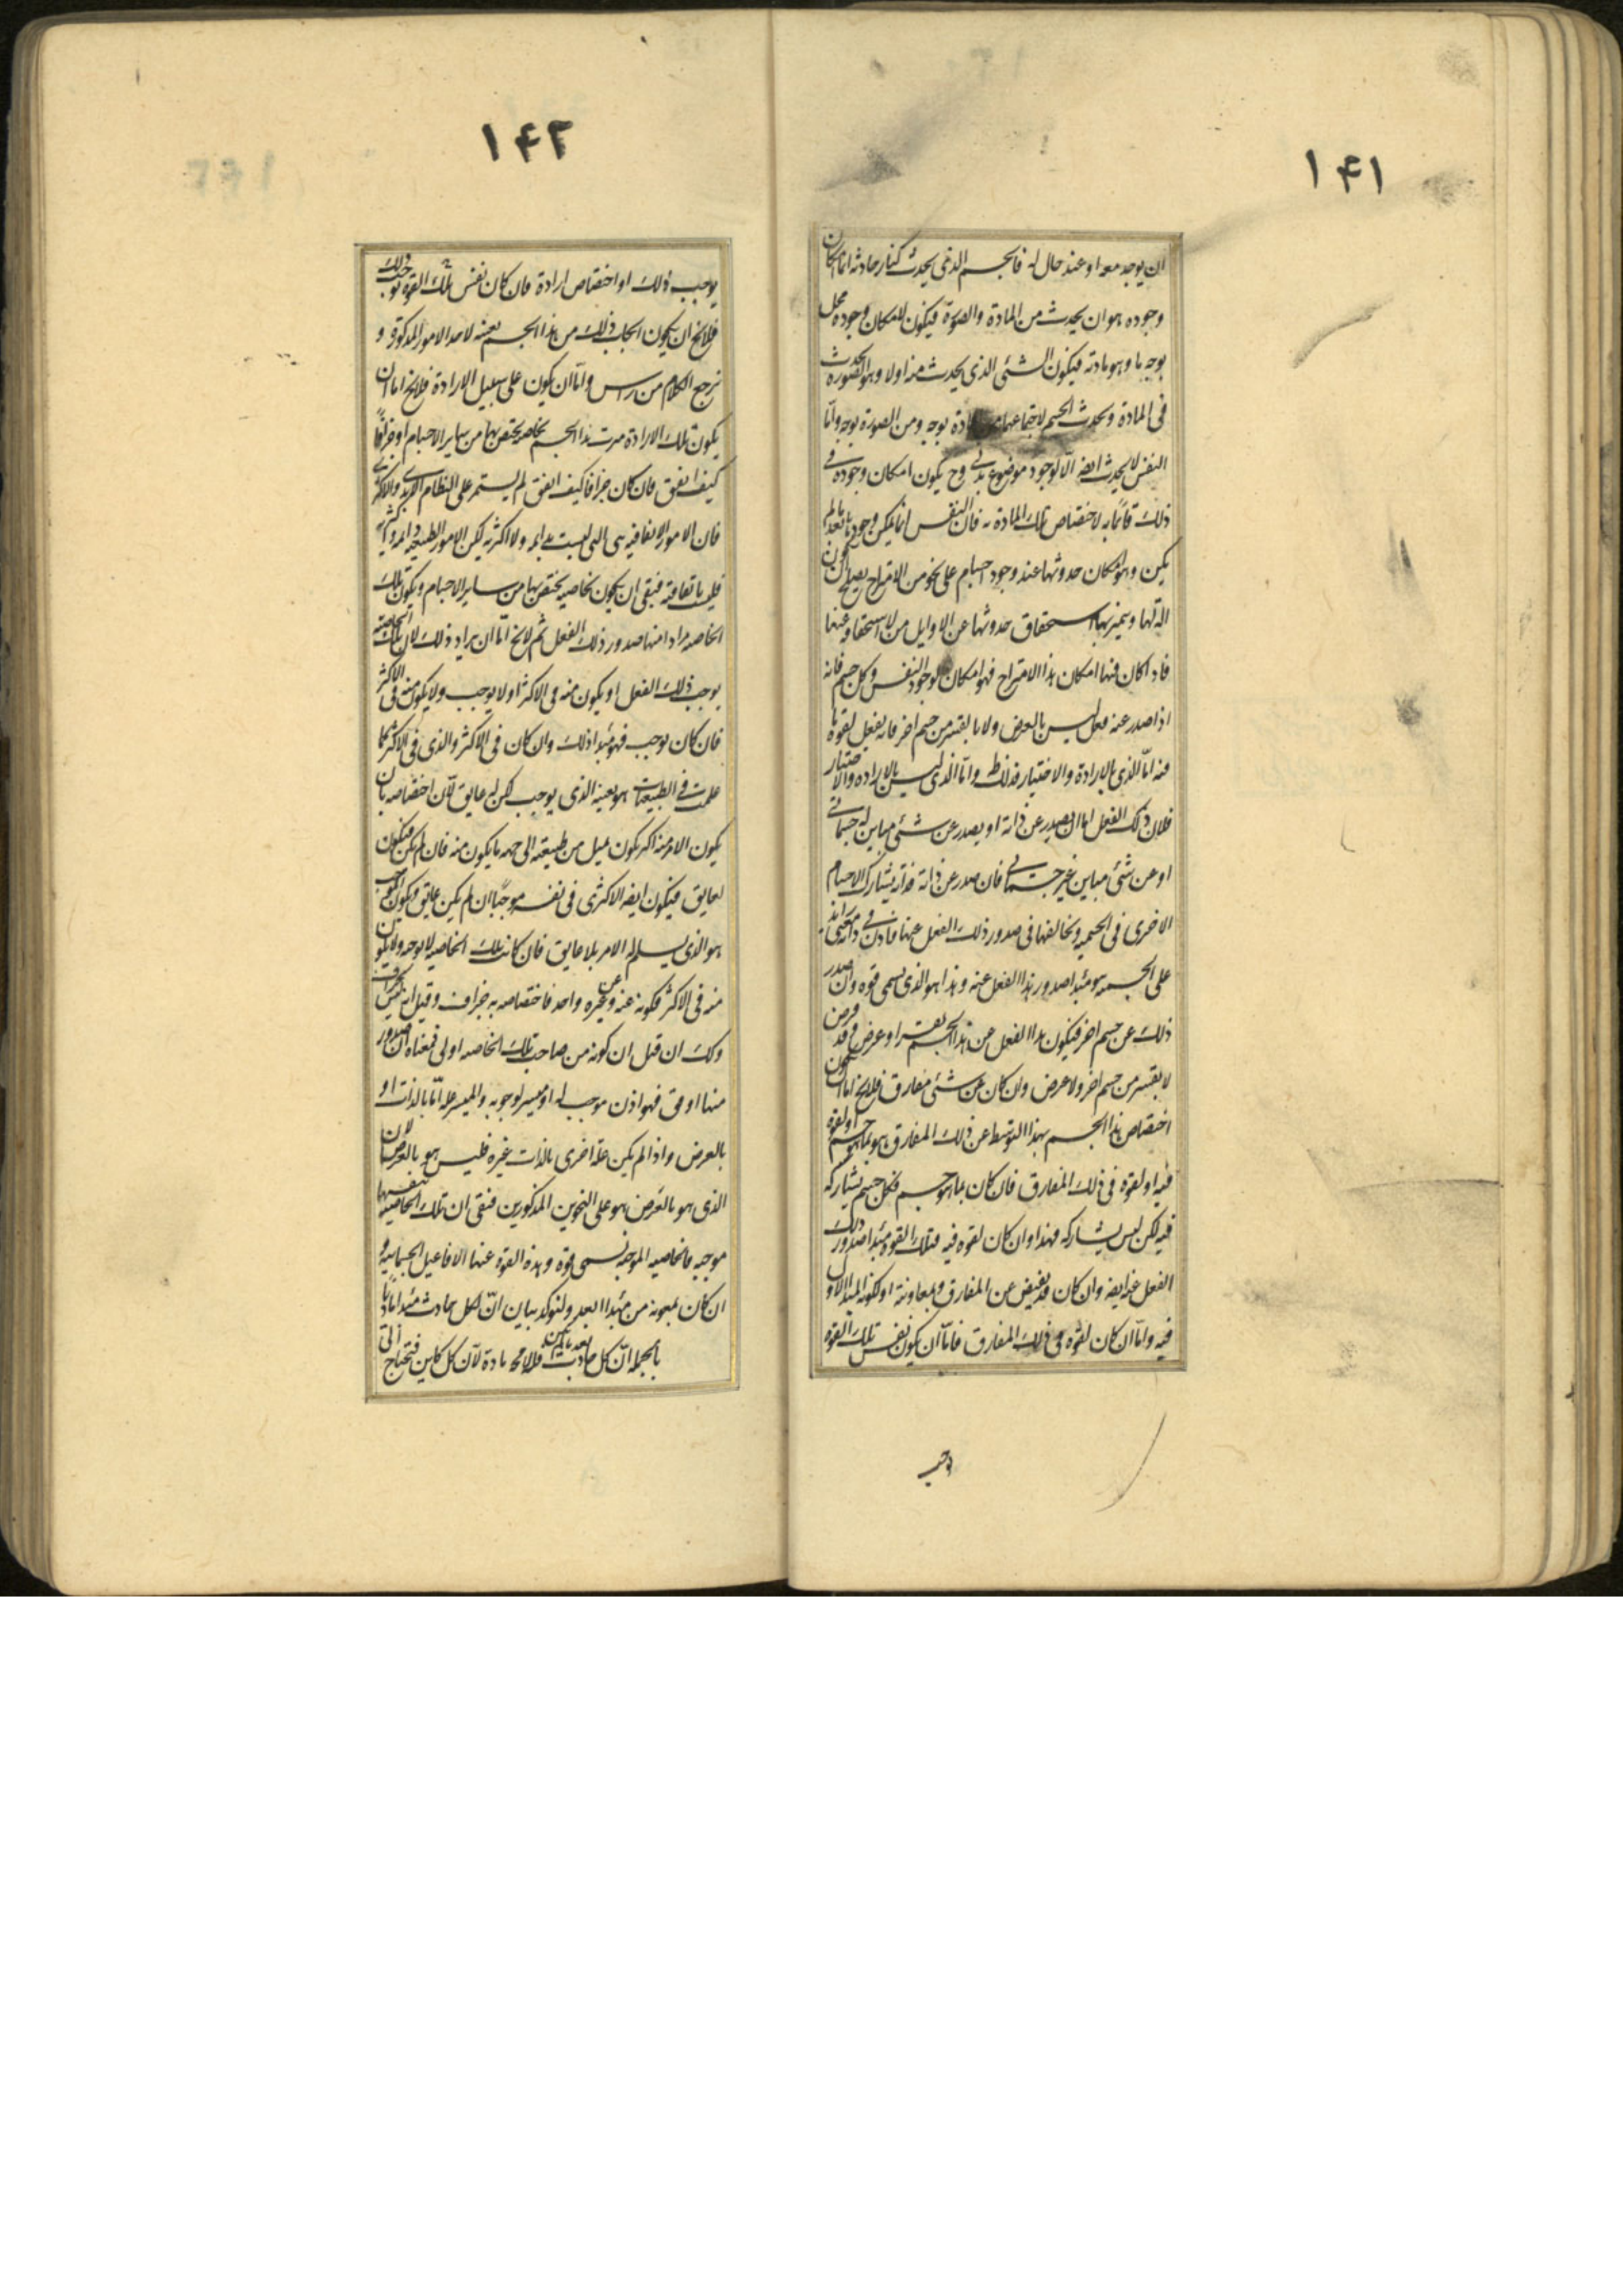 ١۴١
ان يوجد معه او عند حال له فالجسم الذى يحدث كنار حادثه انما امكان
وجوده هو ان يحدث من المادة والصورة فيكون لامكان وجوده محل
بوجه ما وهو مادته فيكون الشئى الذى يحدث منه اولا وهو الصوره يحدث
فى المادة و يحدث الجسم لاجتماعهما من المادة بوجه ومن الصورة بوجه وامّا
النفس لا يحدث ايضه الّا لوجود موضوع بدنى وح يكون امكان وجوده فى
ذلك قائما به لاختصاص تلك المادة به فان النفس انما يمكن وجودها بعد ما لم
يكن وهو امكان حدوثها عند وجود اجسام على نحو من الامتزاج يصلح ان يكون
الة لها ويتميز بها استحقاق حدوثها عن الاوايل من لا استحقاقه عنها
فاذا كان فيها امكان هذا الامتزاج فهو امكان لوجود النفس وكل جسم فانه
اذا صدر عنه فعل ليس بالعرض ولا بالقسر من جسم اخر فانه يفعل بقوة ما
فيه امّا الذى بالارادة والاختيار فذلك ظ وامّا الذى ليس بالاراده والاختيار
فلان ذلك الفعل اما ان يصدر عن ذاته او يصدر عن شئى مباين له جسمانى
او عن شئى مباين غير جسمانى فان صدر عن ذاته وذاته يشارك الاجسام
الاخرى فى الجسميه و تخالفها فى صدور ذلك الفعل عنها فاذن فى ذاته معنى زايد
على الجسميه هو مبدا صدور هذا الفعل عنه و هذا هو الذى يسمى قوه وان صدر
ذلك عن جسم اخر فيكون هذا الفعل عن هذا الجسم بقسر او عرض وقد فرض
لا بقسر من جسم اخر ولا عرض وان كان عن شئى مفارق فلايخ اما ان يكون
اختصاص هذا الجسم بهذا التوسط عن ذلك المفارق هو بما هو جسم او لقوه
فيه او لقوة فى ذلك المفارق فان كان بما هو جسم فكل جسم يشاركه
فيه لكن ليس يشاركه فهذا وان كان لقوه فيه فتلك القوه مبدا صدور ذلك
الفعل عنه ايضه وان كان قد يفيض عن المفارق وبمعاونته او لكونه المبدا الاول
فيه وامّا ان كان لقوه فى ذلك المفارق فامّا ان يكون نفس تلك القوه
توجب
١۴٢
يوجب ذلك او اختصاص ارادة فان كان نفس تلك القوه توجب ذلك
فلايخ ان يكون ايجاب ذلك من هذا الجسم بعينه لاحد الامور المذكورة و
نرجع الكلام من راس وامّا ان يكون على سبيل الارادة فلايخ اما ان
يكون تلك الارادة ميزت هذا الجسم بخاصه يختص بها من ساير الاجسام او جزافًا
كيف اتفق فان كان جزافا كيف اتفق لم يستمر على النظام الابدى والاكثرى
فان الامور الاتفاقيه هى التى ليست بدايمه ولا اكثريه لكن الامور الطبيعيه دايمه واكثريه
فليست باتفاقيه فبقى ان يكون بخاصيه يختص بها من ساير الاجسام ويكون تلك
الخاصه مرادا منها صدور ذلك الفعل ثم لايخ امّا ان يراد ذلك لان تلك الخاصيه
يوجب ذلك الفعل او يكون منه فى الاكثر او لا يوجب ولا يكون منه فى الاكثر
فان كان يوجب فهو مبدا ذلك وان كان فى الاكثر والذى فى الاكثر كما
علمت فى الطبيعيات هو بعينه الذى يوجب لكن له عايق لان اختصاصه بان
يكون الامر منه اكثر يكون بميل من طبيعته الى جهه ما يكون منه فان لم يكن فيكون
لعايق فيكون ايضه الاكثرى فى نفسه موجبًا ان لم يكن عايق ويكون الموجب
هو الذى يسلم له الامر بلا عايق فان كانت تلك الخاصيه لا يوجبه ولا يكون
منه فى الاكثر فكونه عنه وعن غيره واحد فاختصاصه به جزاف وقيل انه ليس بجزاف
وكك ان قيل ان كونه من صاحب تلك الخاصه اولى فمعناه ان صدوره
منها اوفق فهو اذن موجب له او ميسر لوجوبه والميسر علة امّا بالذات او
بالعرض واذا لم يكن علة اخرى بالذات غيره فليس هو بالعرض لان
الذى هو بالعَرض هو على النحوين المذكورين فبقى ان تلك الخاصيه بنفسها
موجبه فالخاصيه الموجبه تسمى قوة وهذه القوة عنها الافاعيل الجسمانيه و
ان كان بمعونه من مبدا ابعد ولنوكد بيان انّ لكل حادث مبدا ماديًا
بالجمله انّ كل حادث بعد ما لم يكن فله لامحه مادة لانّ كل كاين فيحتاج الى